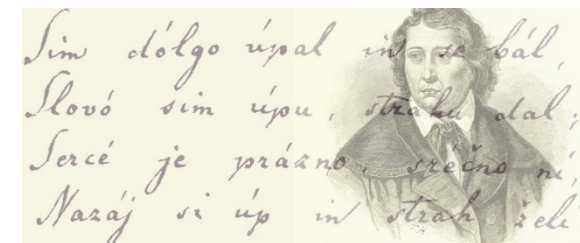 Sim dólgo úpal in se bál,
Slovó sim úpu, strahu dal;
Sercé je prázno, sréčno ní,
Nazáj si úp in strah želi